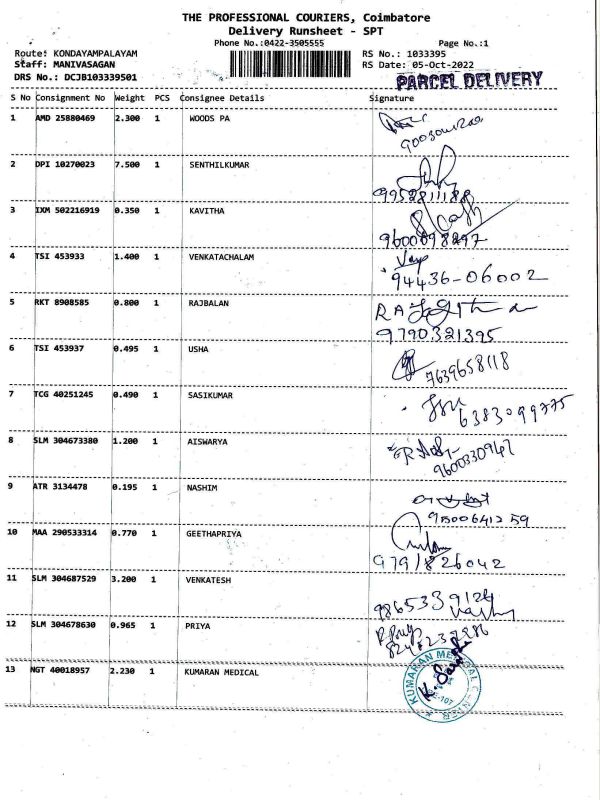 THE PROFESSIONAL COURIERS, Coimbatore
Delivery Runsheet - SPT
Phone No.:0422-3505555 Page No.:1
Route: KONDAYAMPALAYAM RS No.: 1033395
Staff: MANIVASAGAN RS Date: 05-Oct-2022
DRS No.: DCJB103339501 PARCEL DELIVERY
S No Consignment No Weight PCS Consignee Details Signature
1 AMD 25880469 2.300 1 WOODS PA
2 DPI 10270023 7.500 1 SENTHILKUMAR
9952811188
3 IXM 502216919 0.350 1 KAVITHA
9600098297
4 TSI 453933 1.400 1 VENKATACHALAM
94436-06002
5 RKT 8908585 0.800 1 RAJBALAN
9790321395
6 TSI 453937 0.495 1 USHA
7639658118
7 TCG 40251245 0.490 1 SASIKUMAR
6383099775
8 SLM 304673380 1.200 1 AISWARYA
9600330967
9 ATR 3134478 0.195 1 NASHIM
9500641259
10 MAA 290533314 0.770 1 GEETHAPRIYA
9791826042
11 SLM 304687529 3.200 1 VENKATESH
9865339124
12 SLM 304678630 0.965 1 PRIYA
P.Priya
13 NGT 40018957 2.230 1 KUMARAN MEDICAL
KUMARAN MEDICAL CENTER